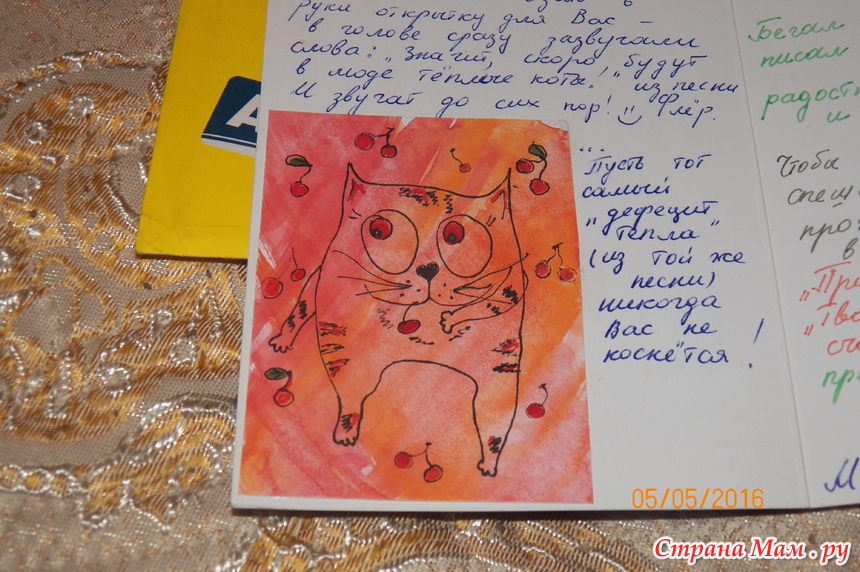 руки открытку для Вас –
в голове сразу зазвучали
слова: „Значит, скоро будут
в моде тёплые коты!" из песни
И звучат до сих пор! Флёр.
...
Пусть тот
самый
„дефецит
тепла"
(из той же
песни)
никогда
Вас не
коснётся!
Бегал
писал
радост
и
Чтобы
спеш
про
в
„Пре
„Тво
сч
пр
М
А
05/05/2016
Страна Мам.ру